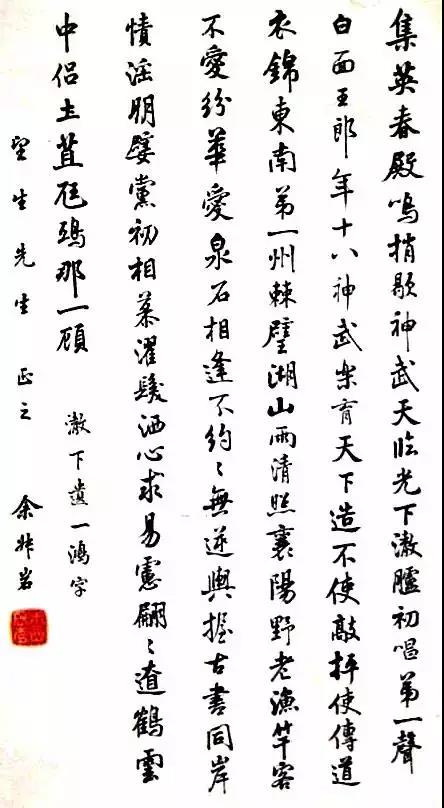 集英春殿鳴捎歇神武天臨光下澈臚初唱第一聲
白面王郎年十八神武樂育天下造不使敲抨使傳道
衣錦東南第一州棘璧湖山兩清照襄陽野老漁竿客
不愛紛華愛泉石相逢不約〻無逆輿握古書同岸
幘淫朋嬖黨初相慕濯髮洒心求易慮翩〻遼鶴雲
中侶土苴尫鴟那一顧
澈下遺一鴻字
望生先生 正之 余叔岩